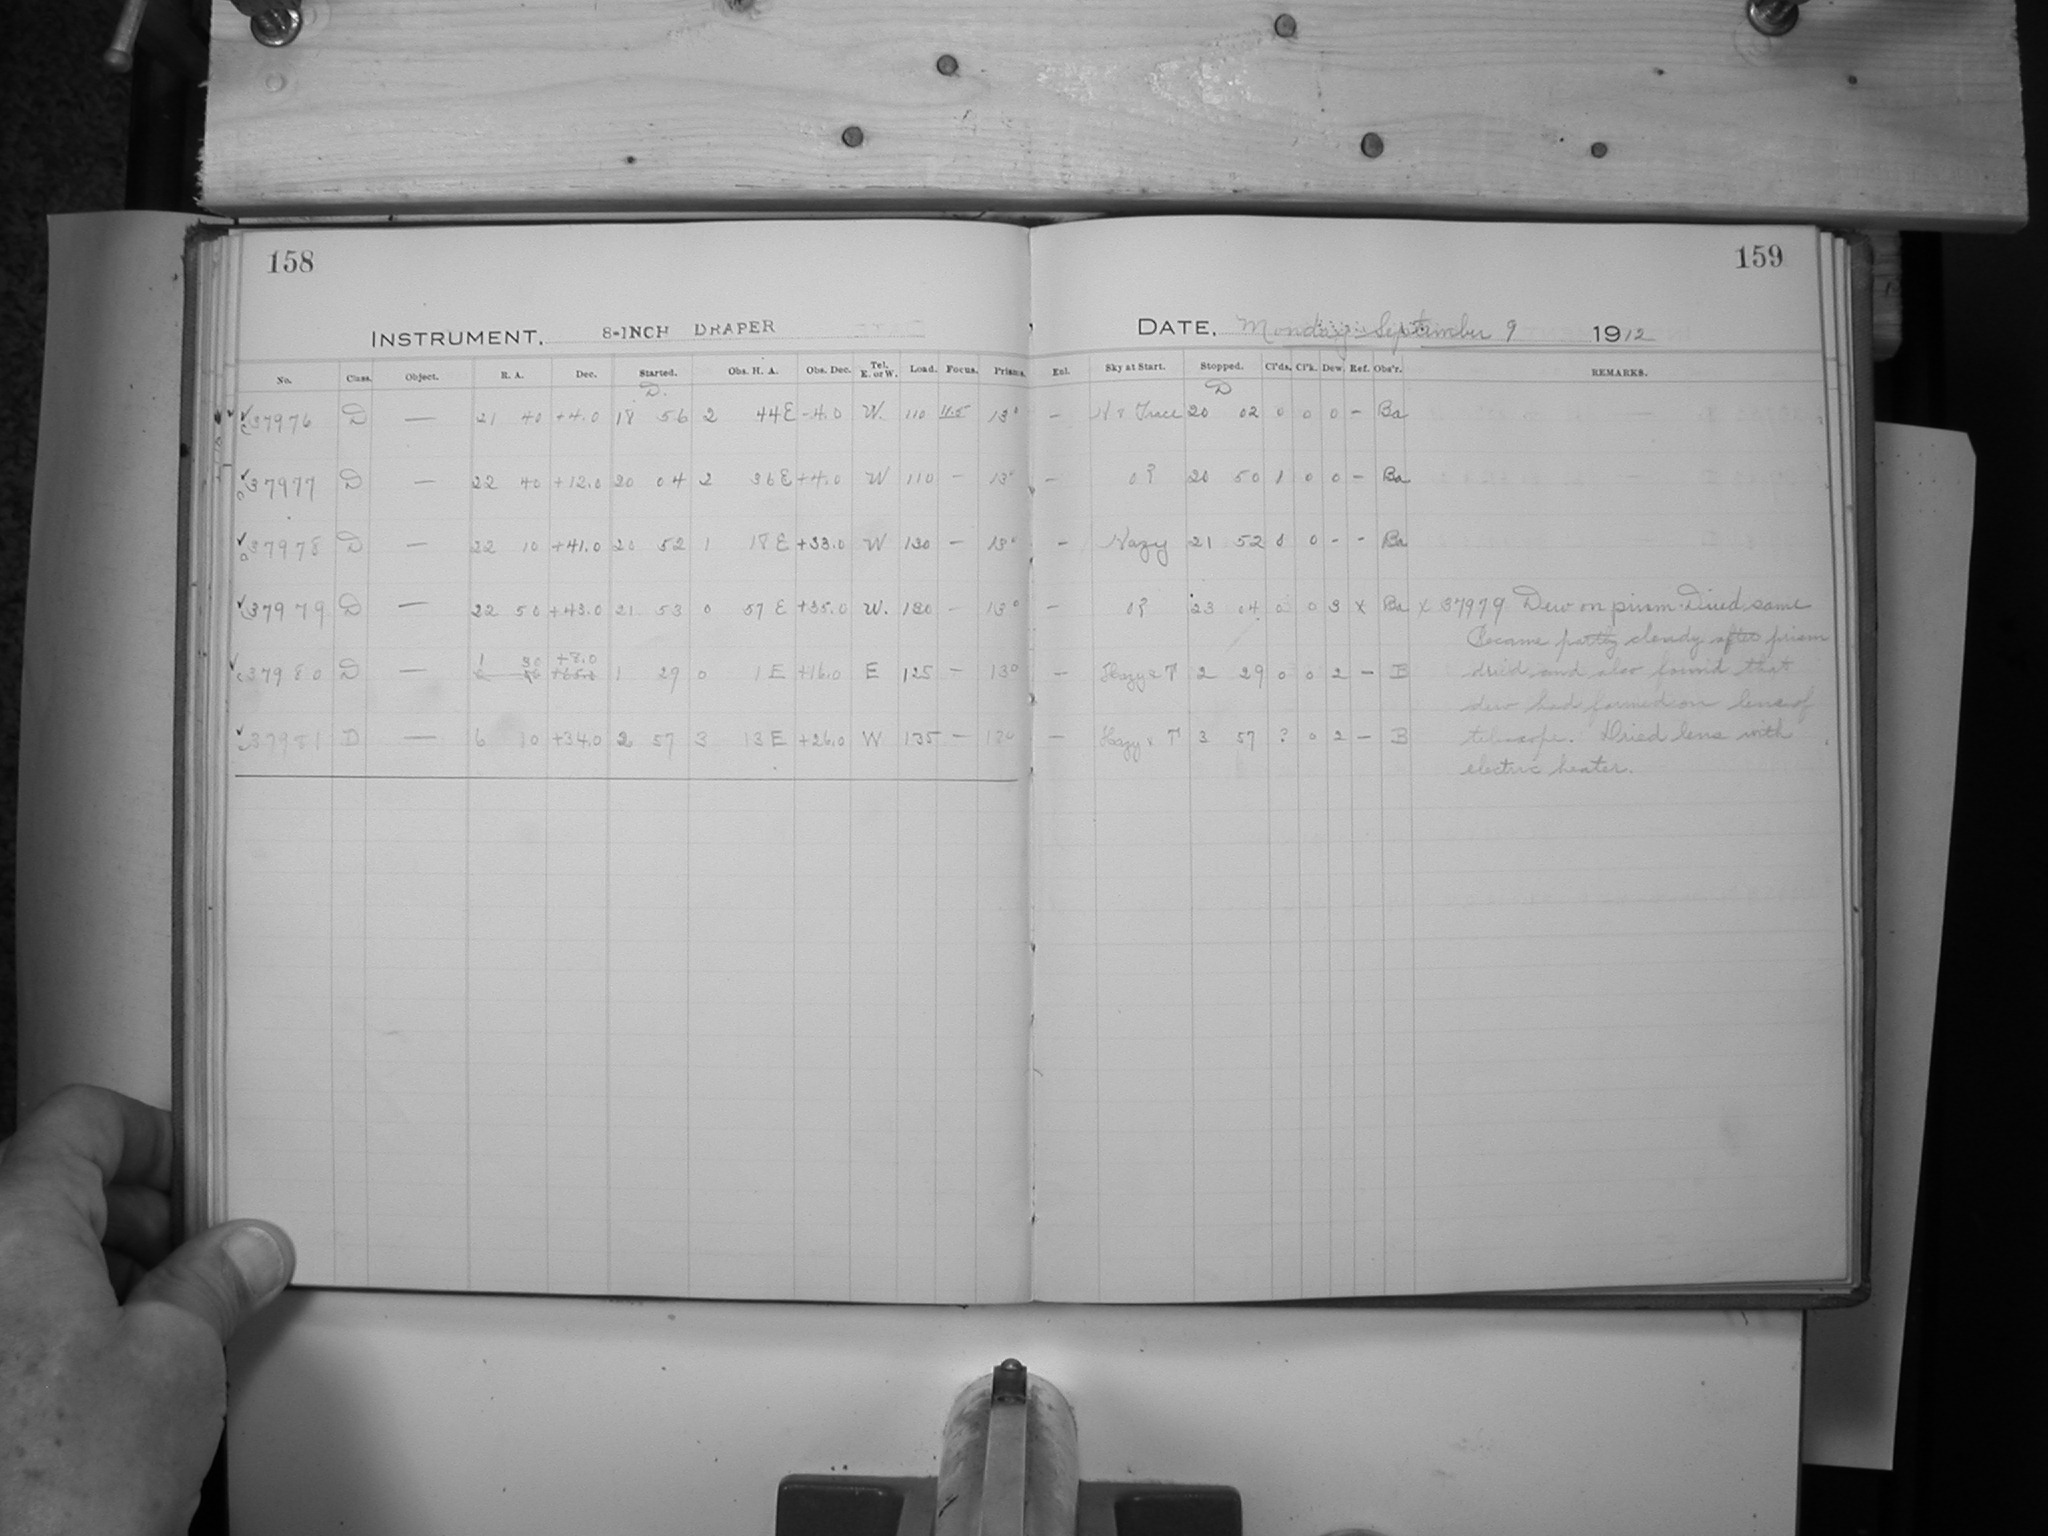 158
159
INSTRUMENT. 8-INCH DRAPER
DATE. Monday September 9 1912
No. Class. Object. R. A. Dec. Started. Obs. H. A. Obs. Dec. Tel. E. or W. Load. Focus. Prisms. Enl. Sky at Start. Stopped. Cl'ds. Cl'k. Dew. Ref. Obs'r. REMARKS.
D. D
37976 D — 21 40 +4.0 18 56 2 44 E -4.0 W. 110 11.5 13° — H & Trace 20 02 0 0 0 – Ba
37977 D — 22 40 +12.0 20 04 2 36 E +4.0 W 110 – 13° — 0? 20 50 1 0 0 – Ba
37978 D — 22 10 +41.0 20 52 1 18 E +33.0 W 130 – 13° – Hazy 21 52 0 0 – – Ba
37979 D — 22 50 +43.0 21 53 0 57 E +35.0 W. 130 – 13° — 0? 23 04 0 0 3 x Ba x 37979 Dew on prism Dried same
Became partly cloudy after prism
1 30 +8.0
37980 D — 1 29 0 1 E +16.0 E 125 – 13° — Hazy & T 2 29 0 0 2 – B dried and also found that
dew had formed on lens of
37981 D — 6 10 +34.0 2 57 3 13 E +26.0 W 135 – 13° — Hazy & T 3 57 ? 0 2 – B telescope. Dried lens with
electric heater.